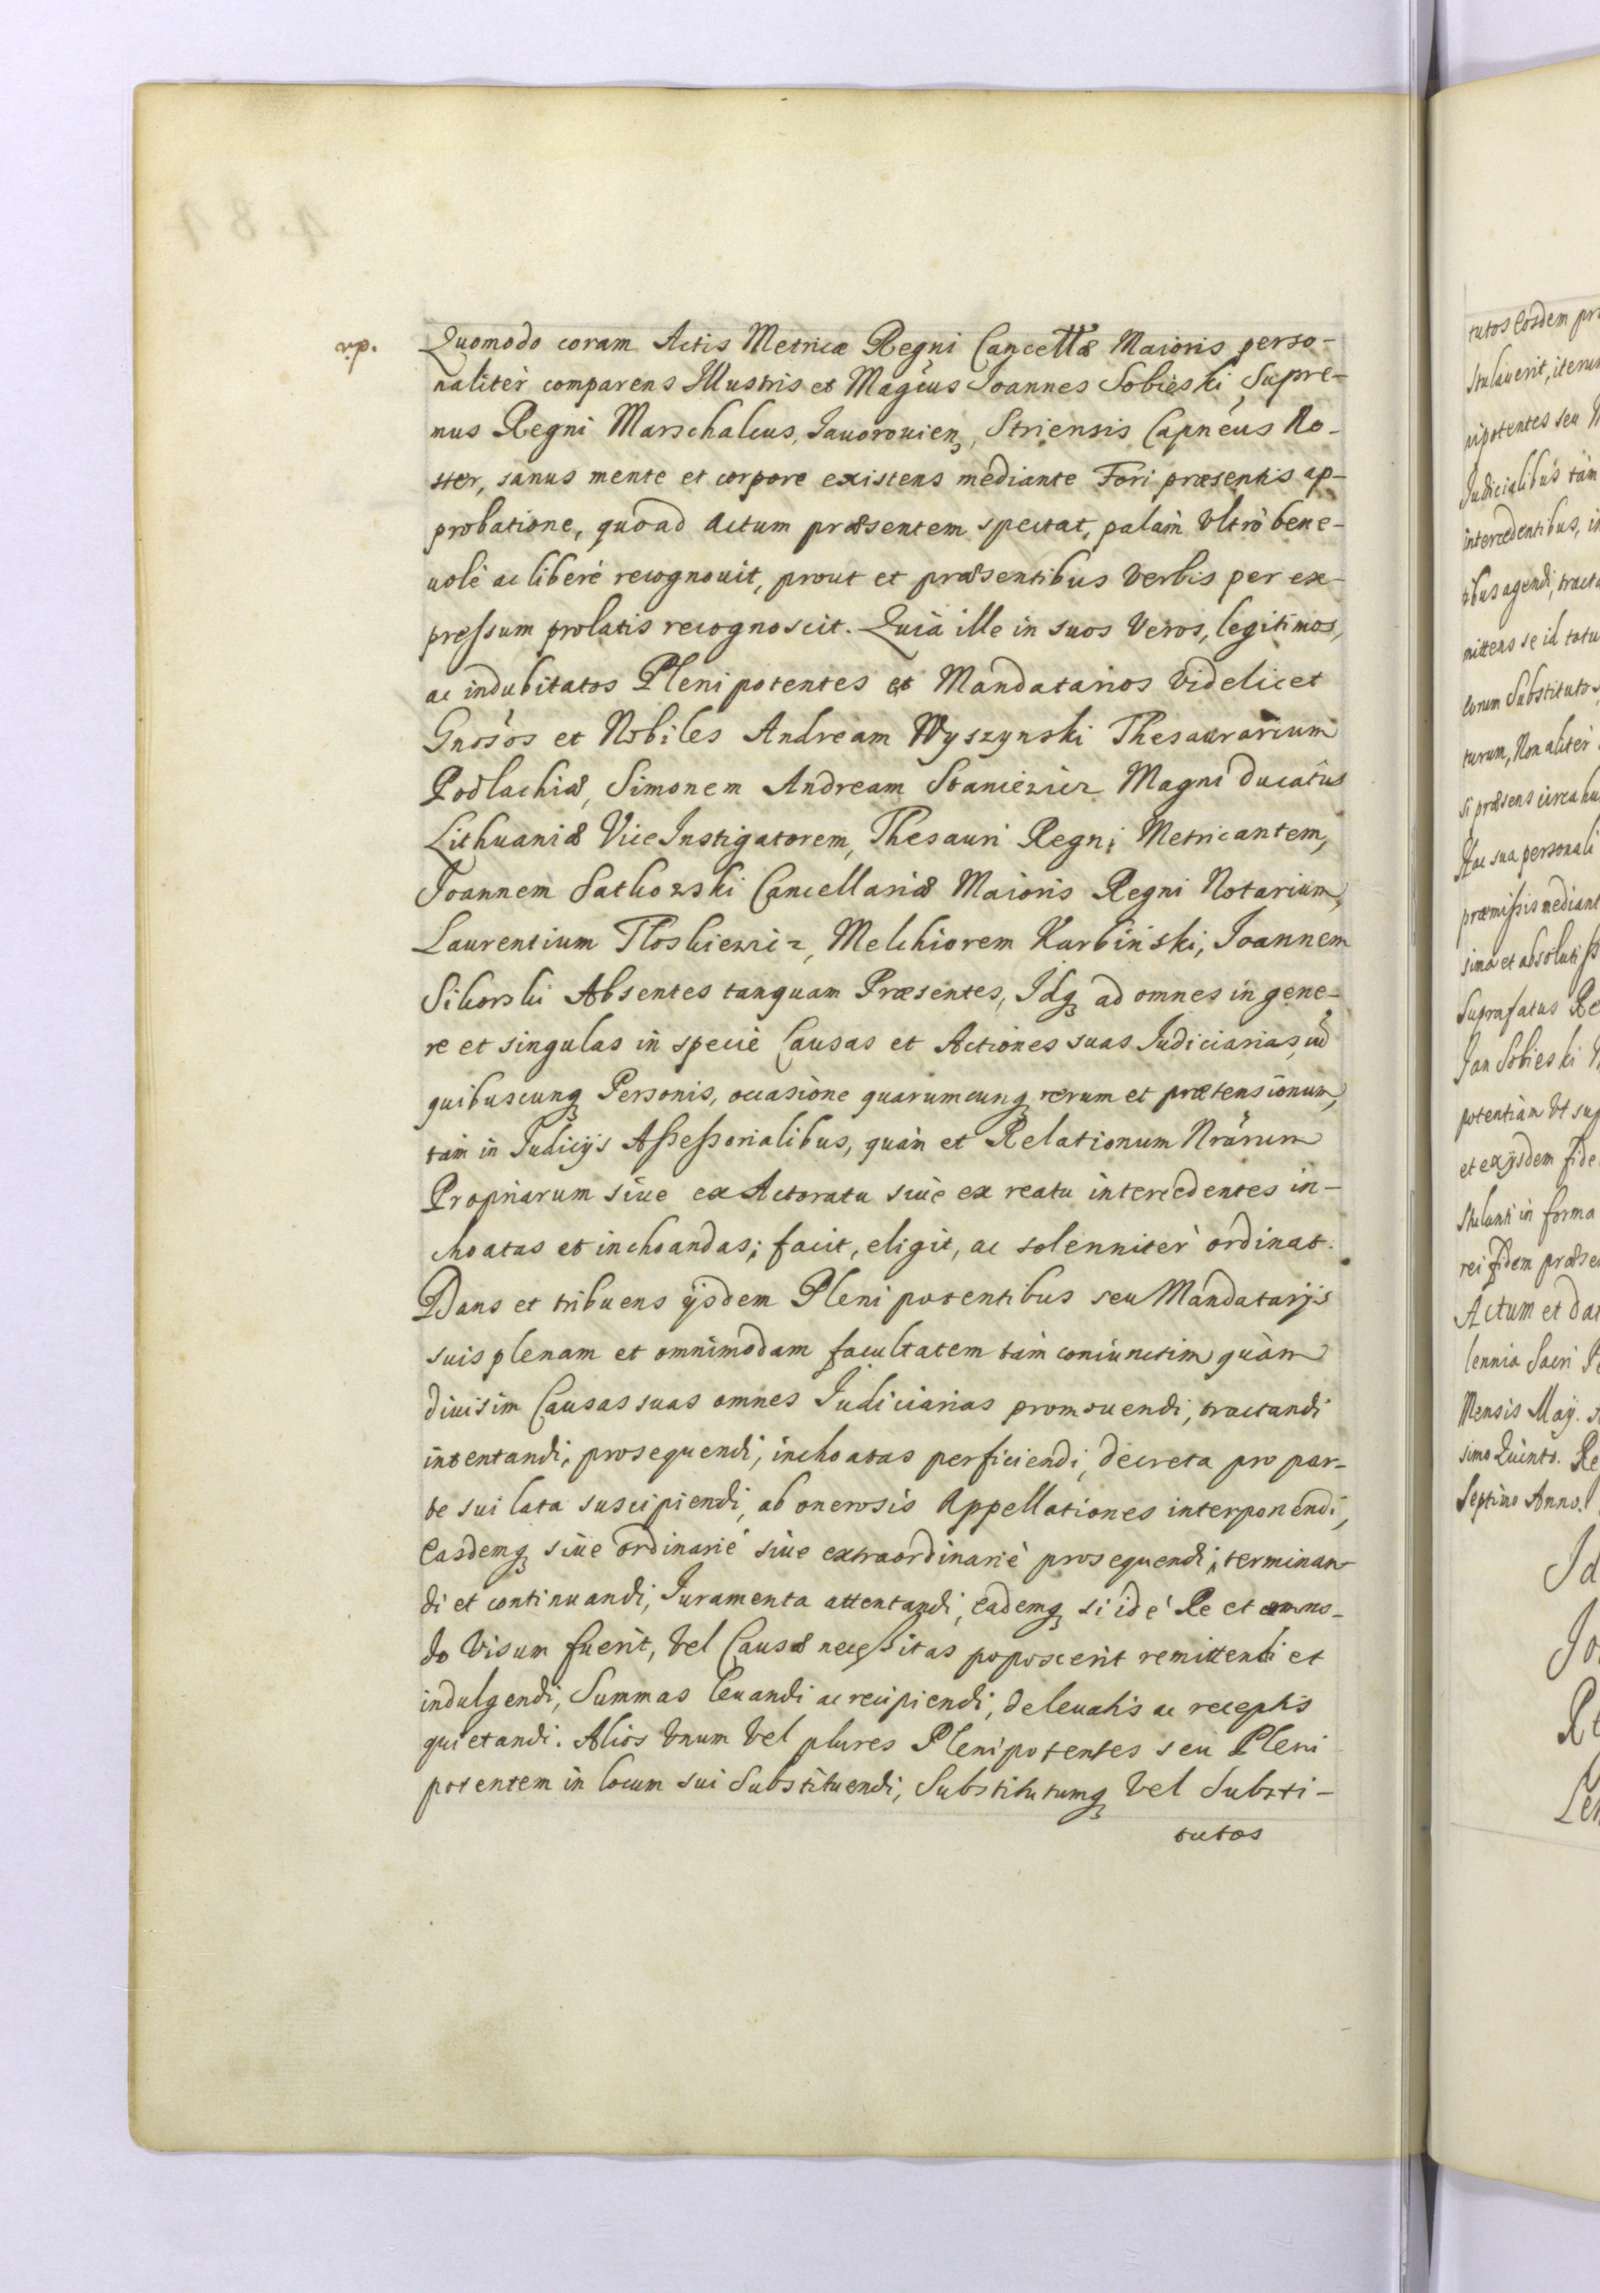 vp.
Quomodo coram Actis Metricæ Regni Cancellæ Maioris perso-
naliter comparens Illustris et Mag̃cus Joannes Sobieski, Supre-
mus Regni Marschalcus, Jauorouien̄, Striensis Capn̄eus No-
ster, sanus mente et corpore existens mediante Fori præsentis ap-
probatione, quoad Actum præsentem spectat, palàm Vltrò bene-
uolè ac liberè recognouit, prout et præsentibus Verbis per ex-
pressum prolatis recognoscit. Quià ille in suos Veros, legitimos,
ac indubitatos Plenipotentes et Mandatarios Videlicet
Gnōsos et Nobiles Andream Wyszynski Thesaurarium
Podlachiæ, Simonem Andream Staniewicz Magni Ducatûs
Lithuaniæ ViceInstigatorem, Thesauri Regni Metricantem,
Joannem Satkowski Cancellariæ Maioris Regni Notarium,
Laurentium Ploskiewicz, Melchiorem Karbinski, Joannem
Sikorski Absentes tanquam Præsentes, Idq ad omnes in gene-
re et singulas in specie Causas et Actiones suas Judiciarias, cũ
quibuscunq Personis, occasione quarumcunq rerum et prætensionum,
tàm in Judicijs Assessorialibus, quàm et Relationum Nrārum
Propriarum siue ex Actoratu siue ex reatu intercedentes in-
choatas et inchoandas; facit, eligit, ac solenniter ordinat.
Dans et tribuens ijsdem Plenipotentibus seu Mandatarijs
suis plenam et omnimodam facultatem tàm coniunctim quàm
diuisim Causas suas omnes Judiciarias promouendi, tractandi
intentandi, prosequendi, inchoatas perficiendi, decreta pro par-
te sui lata suscipiendi, ab onerosis Appellationes interponendi,
Easdemq siue ordinariè siue extraordinariè prosequendi, terminan-
di et continuandi, Juramenta attentandi, eademq si id è Re et com̄o-
do Visum fuerit, Vel Causæ necessitas poposcerit remittendi et
indulgendi, Summas leuandi ac recipiendi, de leuatis ac receptis
quietandi. Alios Vnum Vel plures Plenipotentes seu Pleni
potentem in locum sui Substituendi, Substitutumq Vel Substi-
tutos
tutos Eosdem
stulauerit, iterum
nipotentes seu
Judicialibus tàm
intercedentibus, in
agendi,
mittens se id
Eorum Substitutos
turum, Non aliter
si præsens circa
Hac sua personali
præmissis
sima et
Suprafatus
Jan Sobieski
potentiam Vt
et ex ijsdem
in forma
rei fidem
Actum et
lennia Sacri
Mensis Maij.
simo Quinto.
Septimo Anno.